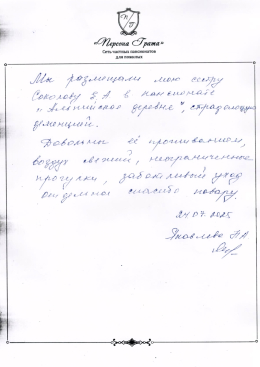 «Персона Грата»
Сеть частных пансионатов
для пожилых
Мы размещали мою сестру
Соколову З.А в пансионате
"Альпийская деревня", страдающую
деменцией.
Довольны её проживанием,
воздух свежий, неограниченные
прогулки, заботливый уход
отдельное спасибо повару.
24.07.2025
Яковлева Н.А